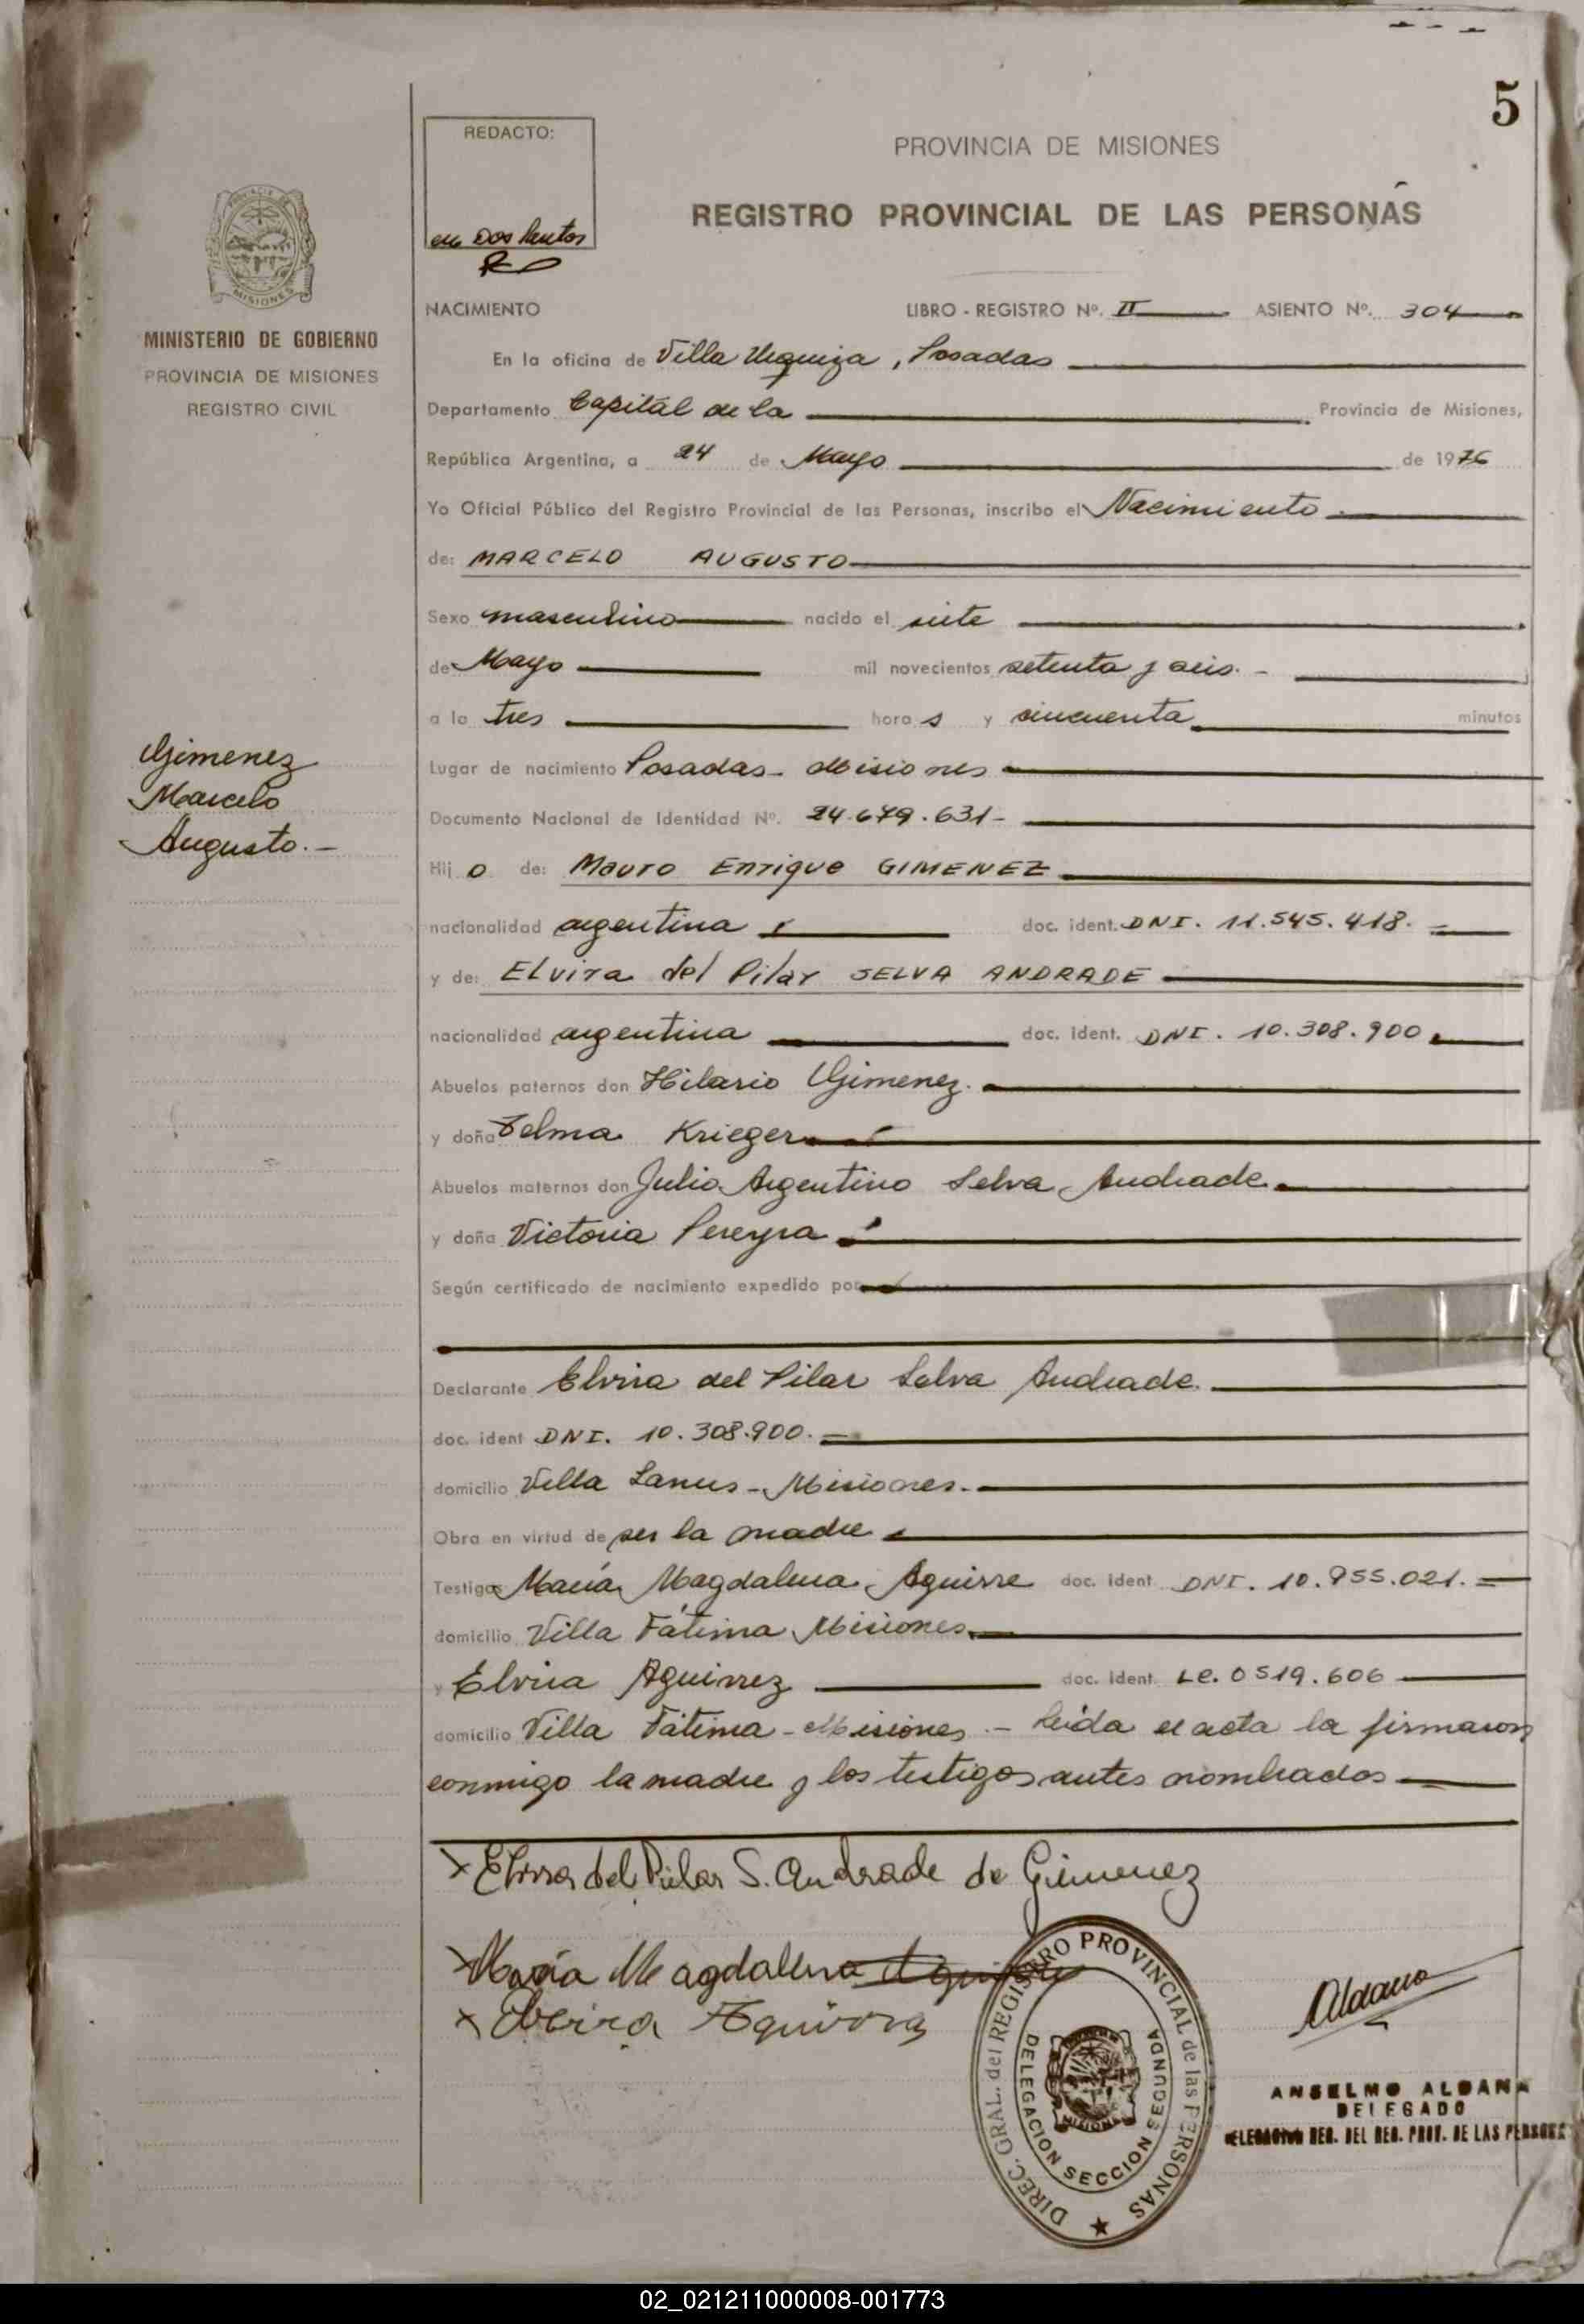 5
REDACTO:
PROVINCIA DE MISIONES
REGISTRO PROVINCIAL DE LAS PERSONAS
MINISTERIO DE GOBIERNO
PROVINCIA DE MISIONES
REGISTRO CIVIL
NACIMIENTO LIBRO - REGISTRO Nº. II ASIENTO Nº. 304
En la oficina de Villa Urquiza, Posadas
Departamento Capital de la Provincia de Misiones,
República Argentina, a 24 de Mayo de 1976
Yo Oficial Público del Registro Provincial de las Personas, inscribo el Nacimiento
de: MARCELO AUGUSTO
Sexo masculino nacido el siete
de Mayo mil novecientos setenta y seis.-
a la tres hora s y cincuenta minutos
Gimenez
Marcelo
Augusto.-
Lugar de nacimiento Posadas - Misiones
Documento Nacional de Identidad Nº. 24.679.631-
Hij o de: Mauro Enrique GIMENEZ
nacionalidad argentina doc. ident. DNI. 11.545.418.
y de: Elvira del Pilar SELVA ANDRADE
nacionalidad argentina doc. ident. DNI. 10.308.900
Abuelos paternos don Hilario Gimenez.
y doña Telma Krieger
Abuelos maternos don Julio Argentino Selva Andrade
y doña Victoria Pereyra
Según certificado de nacimiento expedido por
Declarante Elvira del Pilar Selva Andrade.
doc. ident DNI. 10.308.900.
domicilio Villa Lanus - Misiones.-
Obra en virtud de ser la madre
Testigos María Magdalena Aguirre doc. ident DNI. 10.955.021.
domicilio Villa Fátima Misiones
y Elvira Aguirrez doc. ident. LE. 0519.606
domicilio Villa Fátima - Misiones.- Leída el acta la firmaron
conmigo la madre y los testigos antes nombrados
x Elvira del Pilar S. Andrade de Gimenez
x María Magdallena
x Elveira
DIREC. GRAL. del REGISTRO PROVINCIAL de las PERSONAS
DELEGACION SECCION SEGUNDA
MISIONES
Aldana
ANSELMO ALDANA
DELEGADO
DEL REG. PROV. DE LAS PERSONAS
02_021211000008-001773